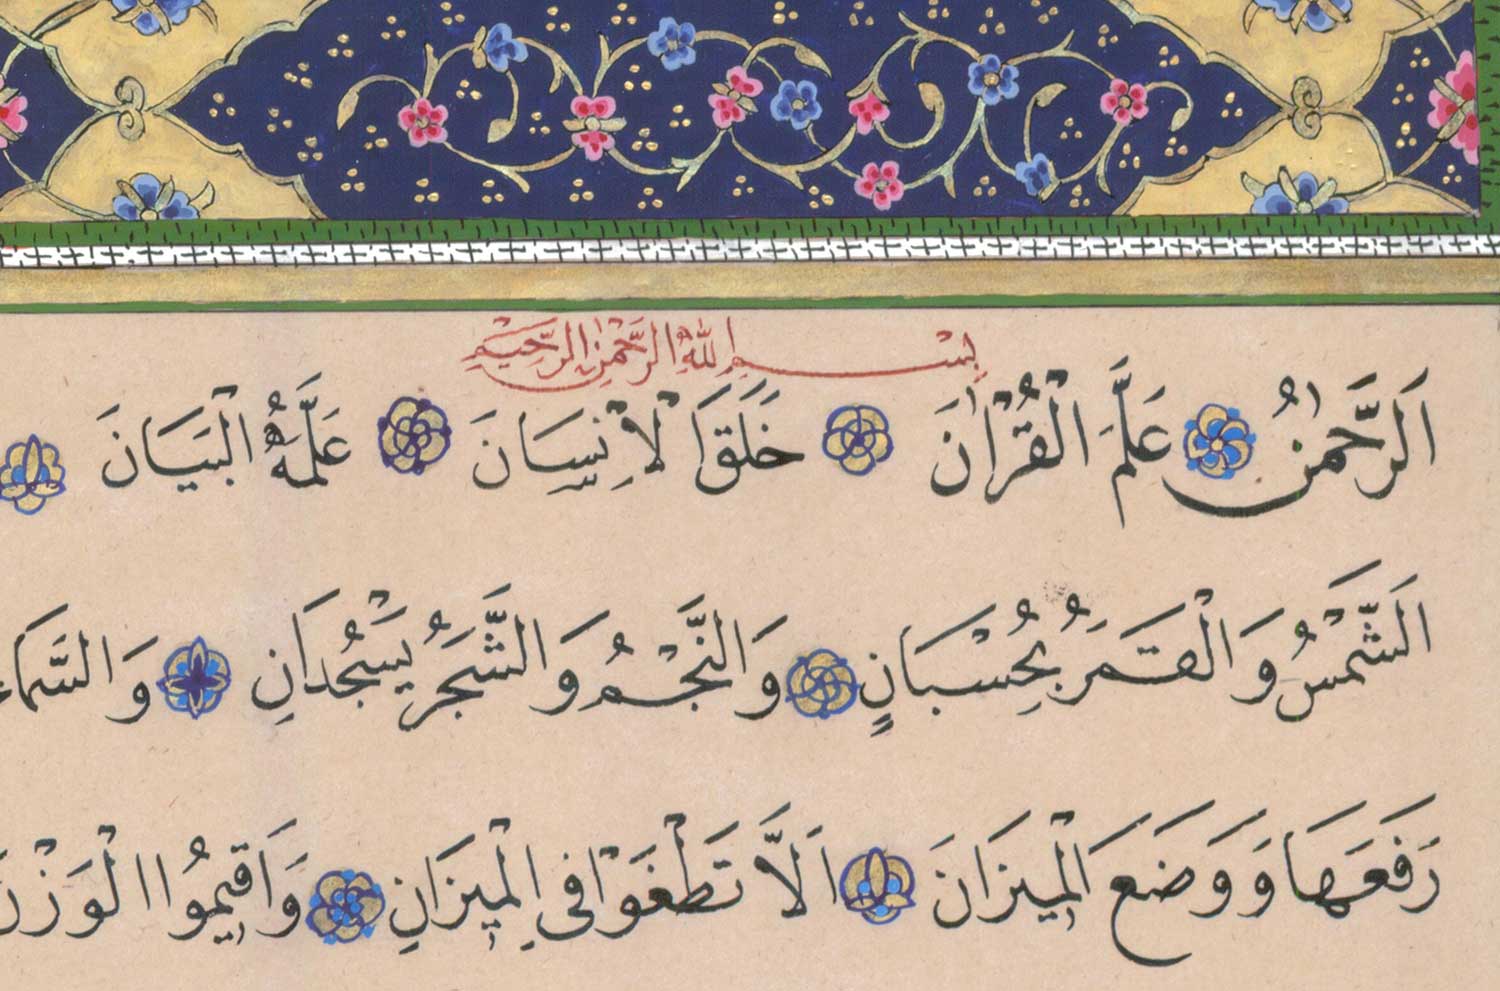 بِسْمِ اللّٰهِ الرَّحْمٰنِ الرَّحِيمِ
اَلرَّحْمٰنُ عَلَّمَ الْقُرْاٰنَ خَلَقَ الْاِنْسَانَ عَلَّمَهُ الْبَيَانَ
اَلشَّمْسُ وَالْقَمَرُ بِحُسْبَانٍ وَالنَّجْمُ وَالشَّجَرُ يَسْجُدَانِ وَالسَّمَاءَ
رَفَعَهَا وَوَضَعَ الْمِيزَانَ اَلَّا تَطْغَوْا فِي الْمِيزَانِ وَاَقِيمُوا الْوَزْنَ